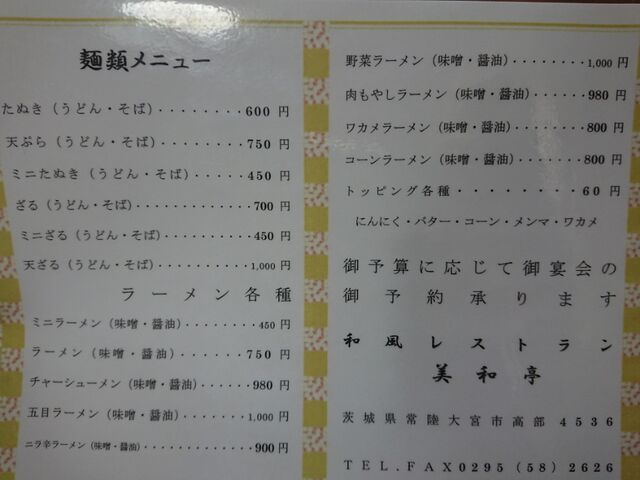 麺類メニュー
たぬき（うどん・そば）・・・・・・・・600 円
天ぷら（うどん・そば）・・・・・・・750 円
ミニたぬき（うどん・そば）・・・・・450 円
ざる（うどん・そば）・・・・・・・・700 円
ミニざる（うどん・そば）・・・・・・450 円
天ざる（うどん・そば）・・・・・・・1,000 円
ラーメン各種
ミニラーメン（味噌・醤油）・・・・・・・・450 円
ラーメン（味噌・醤油）・・・・・・750 円
チャーシューメン（味噌・醤油）・・・・・980 円
五目ラーメン（味噌・醤油）・・・・・・1,000 円
ニラ辛ラーメン（味噌・醤油）・・・・・・・・・・900 円
野菜ラーメン（味噌・醤油）・・・・・・・・1,000 円
肉もやしラーメン（味噌・醤油）・・・・・980 円
ワカメラーメン（味噌・醤油）・・・・・・800 円
コーンラーメン（味噌・醤油）・・・・・・800 円
トッピング各種・・・・・・・・60 円
にんにく・バター・コーン・メンマ・ワカメ
御予算に応じて御宴会の
御予約承ります
和風レストラン
美和亭
茨城県常陸大宮市高部4536
TEL.FAX0295（58）2626